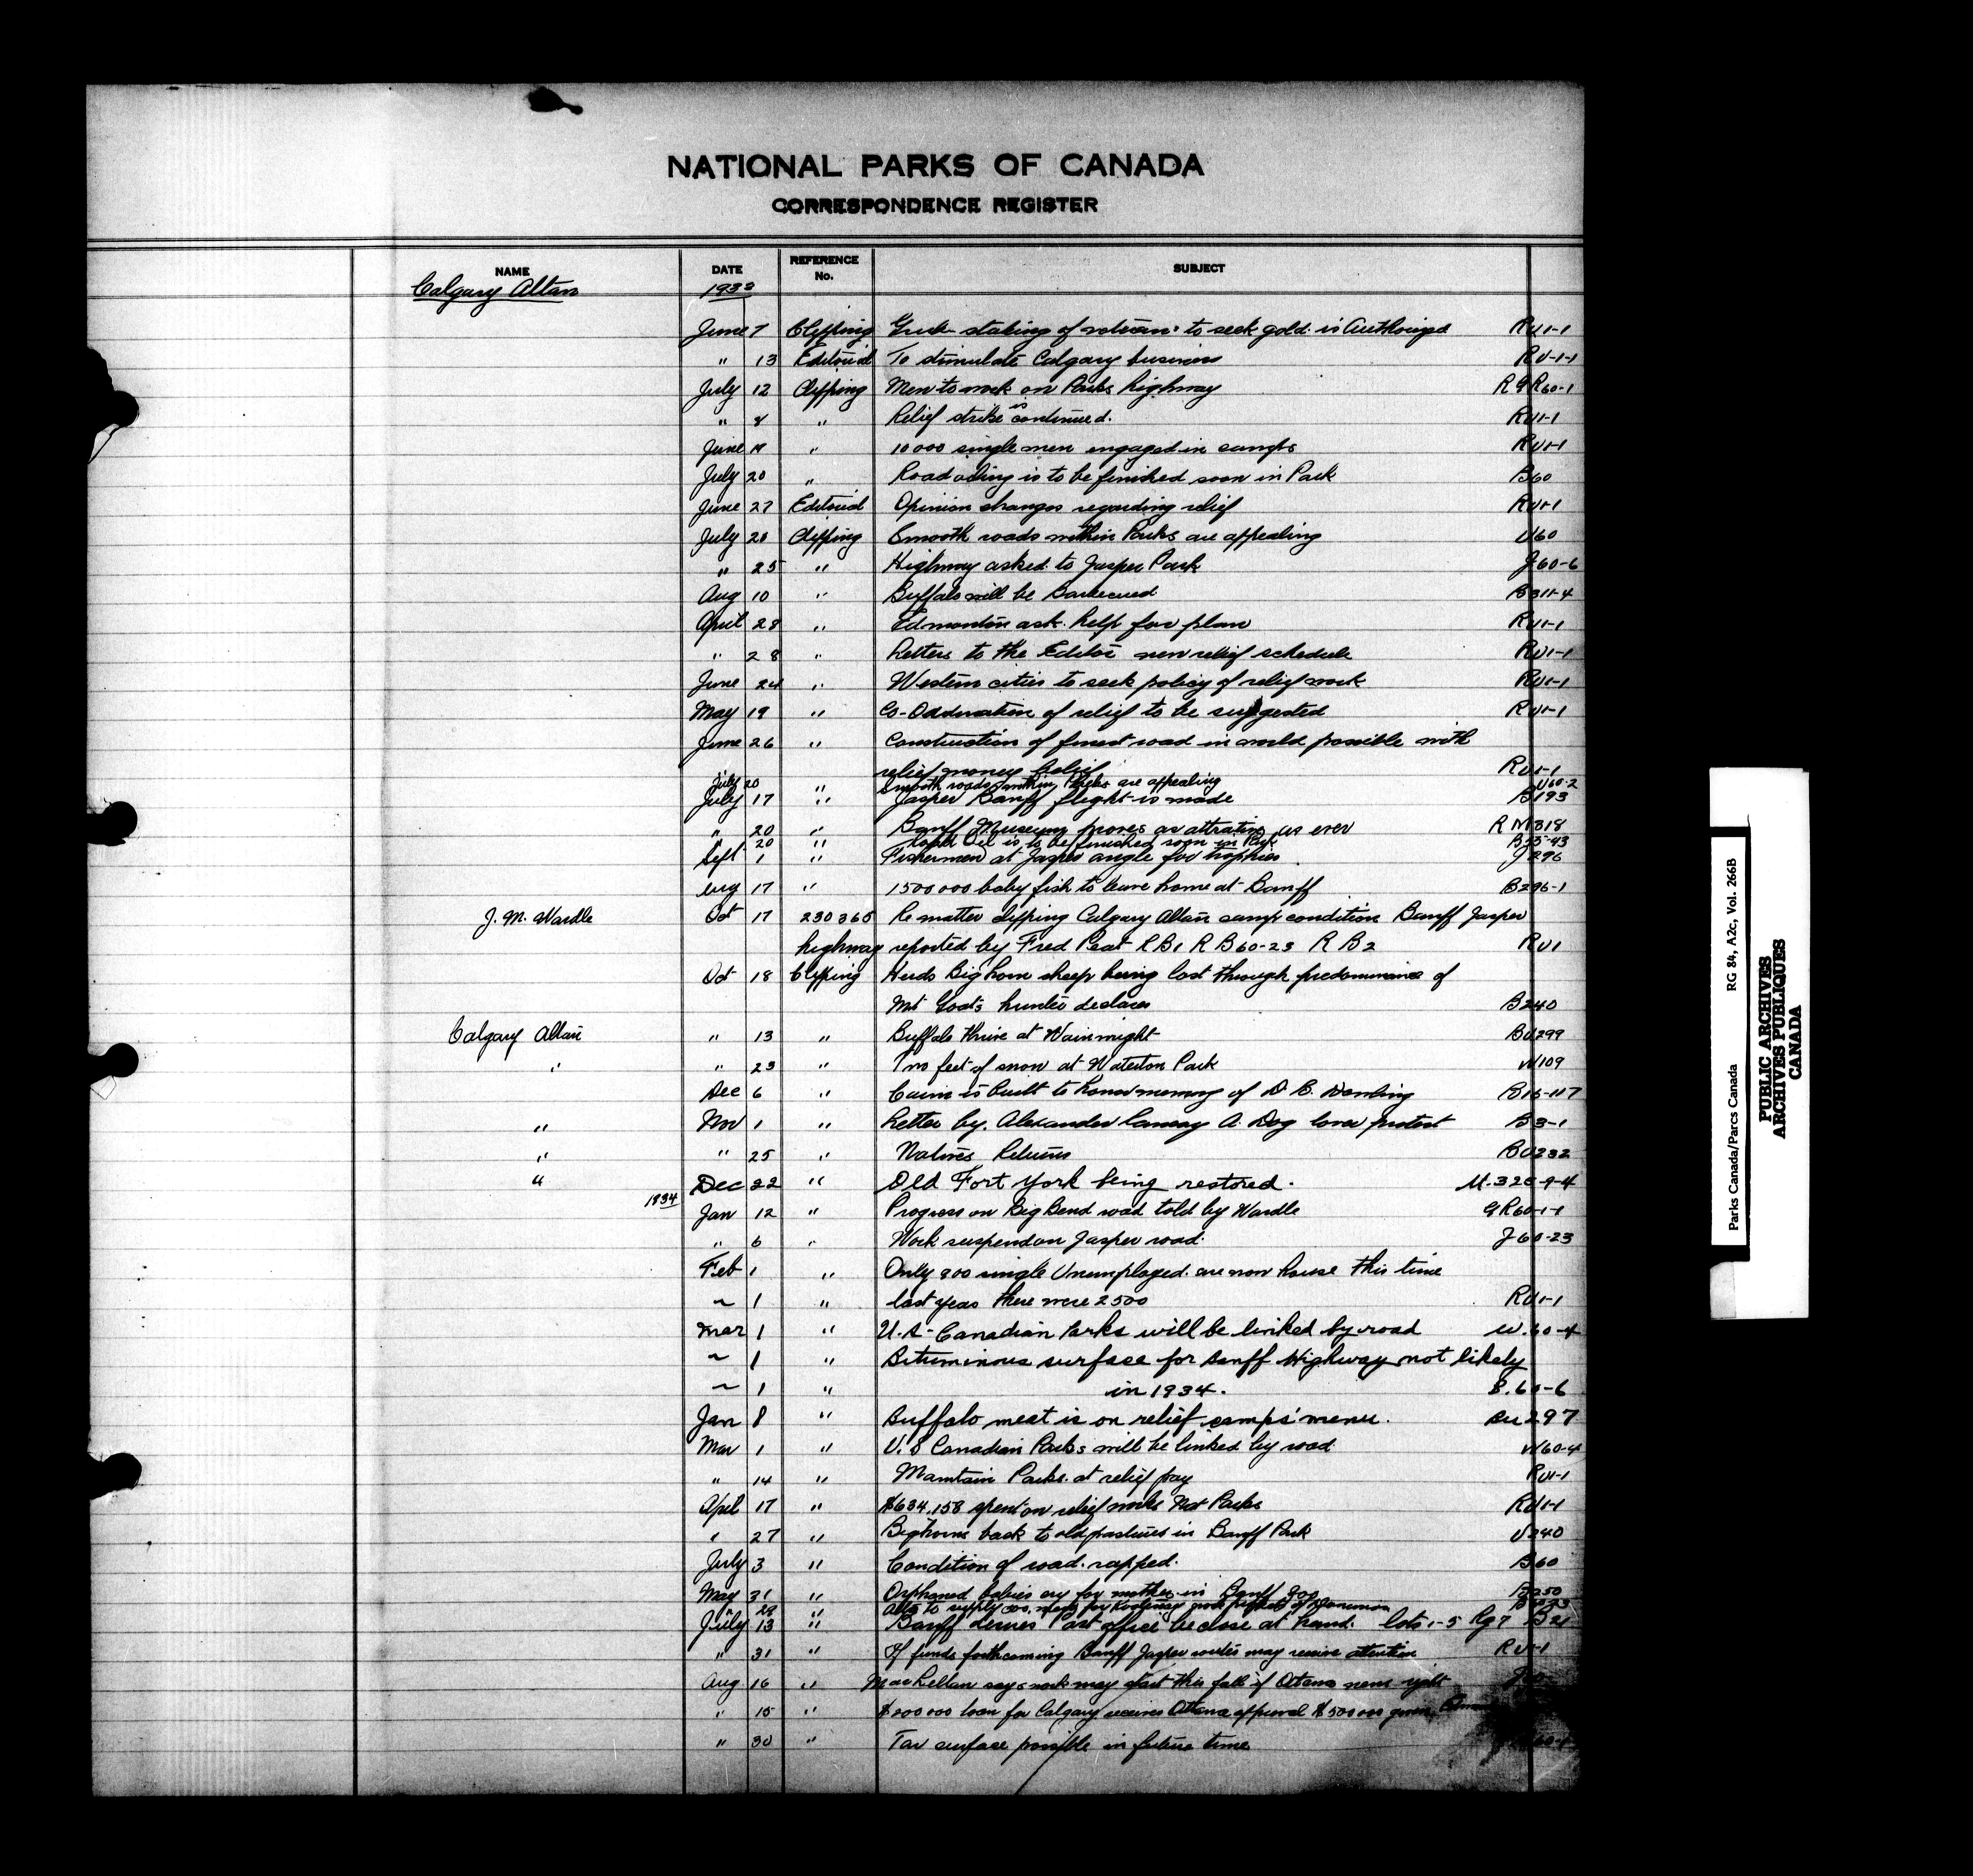 NATIONAL PARKS OF CANADA
CORRESPONDENCE REGISTER
NAME DATE REFERENCE No. SUBJECT
Calgary Altan 1933
June 7 Clipping Grub staking of veterans to seek gold is Authorized RU1-1
" 13 Editorial To stimulate Calgary business RU-1-1
July 12 Clipping Men to work on Parks highway R G R60-1
" 8 " Relief strike is continued. RU1-1
June " 10000 single men engaged in camps RU1-1
July 20 " Road oiling is to be finished soon in Park B60
June 27 Editorial Opinion changes regarding relief RU1-1
July 20 Clipping Smooth roads within Parks are appealing U60
" 25 " Highway asked to Jasper Park J60-6
Aug 10 " Buffalo will be Barbecued B311-4
April 28 " Edmonton ask help for plan RU1-1
" 28 " Letters to the Editor new relief schedule RU1-1
June 24 " Western cities to seek policy of relief work RU1-1
May 19 " Co-Ordination of relief to be suggested RU1-1
June 26 " Construction of finest road in world possible with
relief money belief RU1-1
July 20 " Smooth roads within Parks are appealing U60-2
July 17 " Jasper Banff flight is made B193
" 20 " Banff Museum proves as attrative as ever R M318
20 " Oil is to be finished soon in Park
Sept 1 " Fishermen at Jasper angle for trophies J296
Aug 17 " 1500000 baby fish to leave home at Banff B296-1
J. M. Wardle Oct 17 230365 Re matter clipping Calgary Altan camp condition Banff Jasper
highway reported by Fred Peat R B1 R B60-23 R B2 RU1
Oct 18 Clipping Herds Big horn sheep being lost through predominance of
Mt Goats hunter declares B240
Calgary Altan " 13 " Buffalo thrive at Wainwright BU299
" " 23 " Two feet of snow at Waterton Park W109
Dec 6 " Cairn is built to honor memory of D. B. Dowling B15-117
" Nov 1 " Letter by Alexander A Dog lover protest B3-1
" " 25 " Natives Returns BU232
" Dec 22 " Old Fort York being restored. M.325-9-4
1934 Jan 12 " Progress on Big Bend road told by Wardle GR60-1-1
" 6 " Work suspend on Jasper road. J60-23
Feb 1 " Only 900 single Unemployed are now house this time
~ 1 " last year there were 2500 RU1-1
Mar 1 " U.S-Canadian Parks will be linked by road W.60-4
~ 1 " Bituminous surface for Banff Highway not likely
~ 1 " in 1934. B.60-6
Jan 8 " Buffalo meat is on relief camps' menu. BU297
Mar 1 " U.S Canadian Parks will be linked by road W60-4
" 14 " Maintain Parks at relief pay RU1-1
April 17 " $634,158 spent on relief works Nat Parks RU1-1
" 27 " Bighorns back to old pastures in Banff Park U240
July 3 " Condition of road rapped. B60
May 31 " Orphaned babies cry for mother in Banff Zoo B250
" 29 " Alta to supply
July 13 " Banff desires Post office be close at hand. lots 1-5 Bg 7 B21
" 31 " If funds forthcoming Banff Jasper routes may receive attention RU1-1
Aug 16 " MacLellan says work may start this fall if Ottawa
" 15 " loan for Calgary receives Ottawa approval $500000 given
" 30 " Tar surface possible in future time
Parks Canada/Parcs Canada RG 84, A2c, Vol. 266B
PUBLIC ARCHIVES
ARCHIVES PUBLIQUES
CANADA